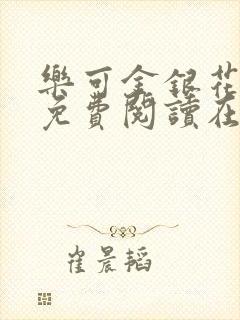 樂可金銀花
免費閱讀在
崔晨韜